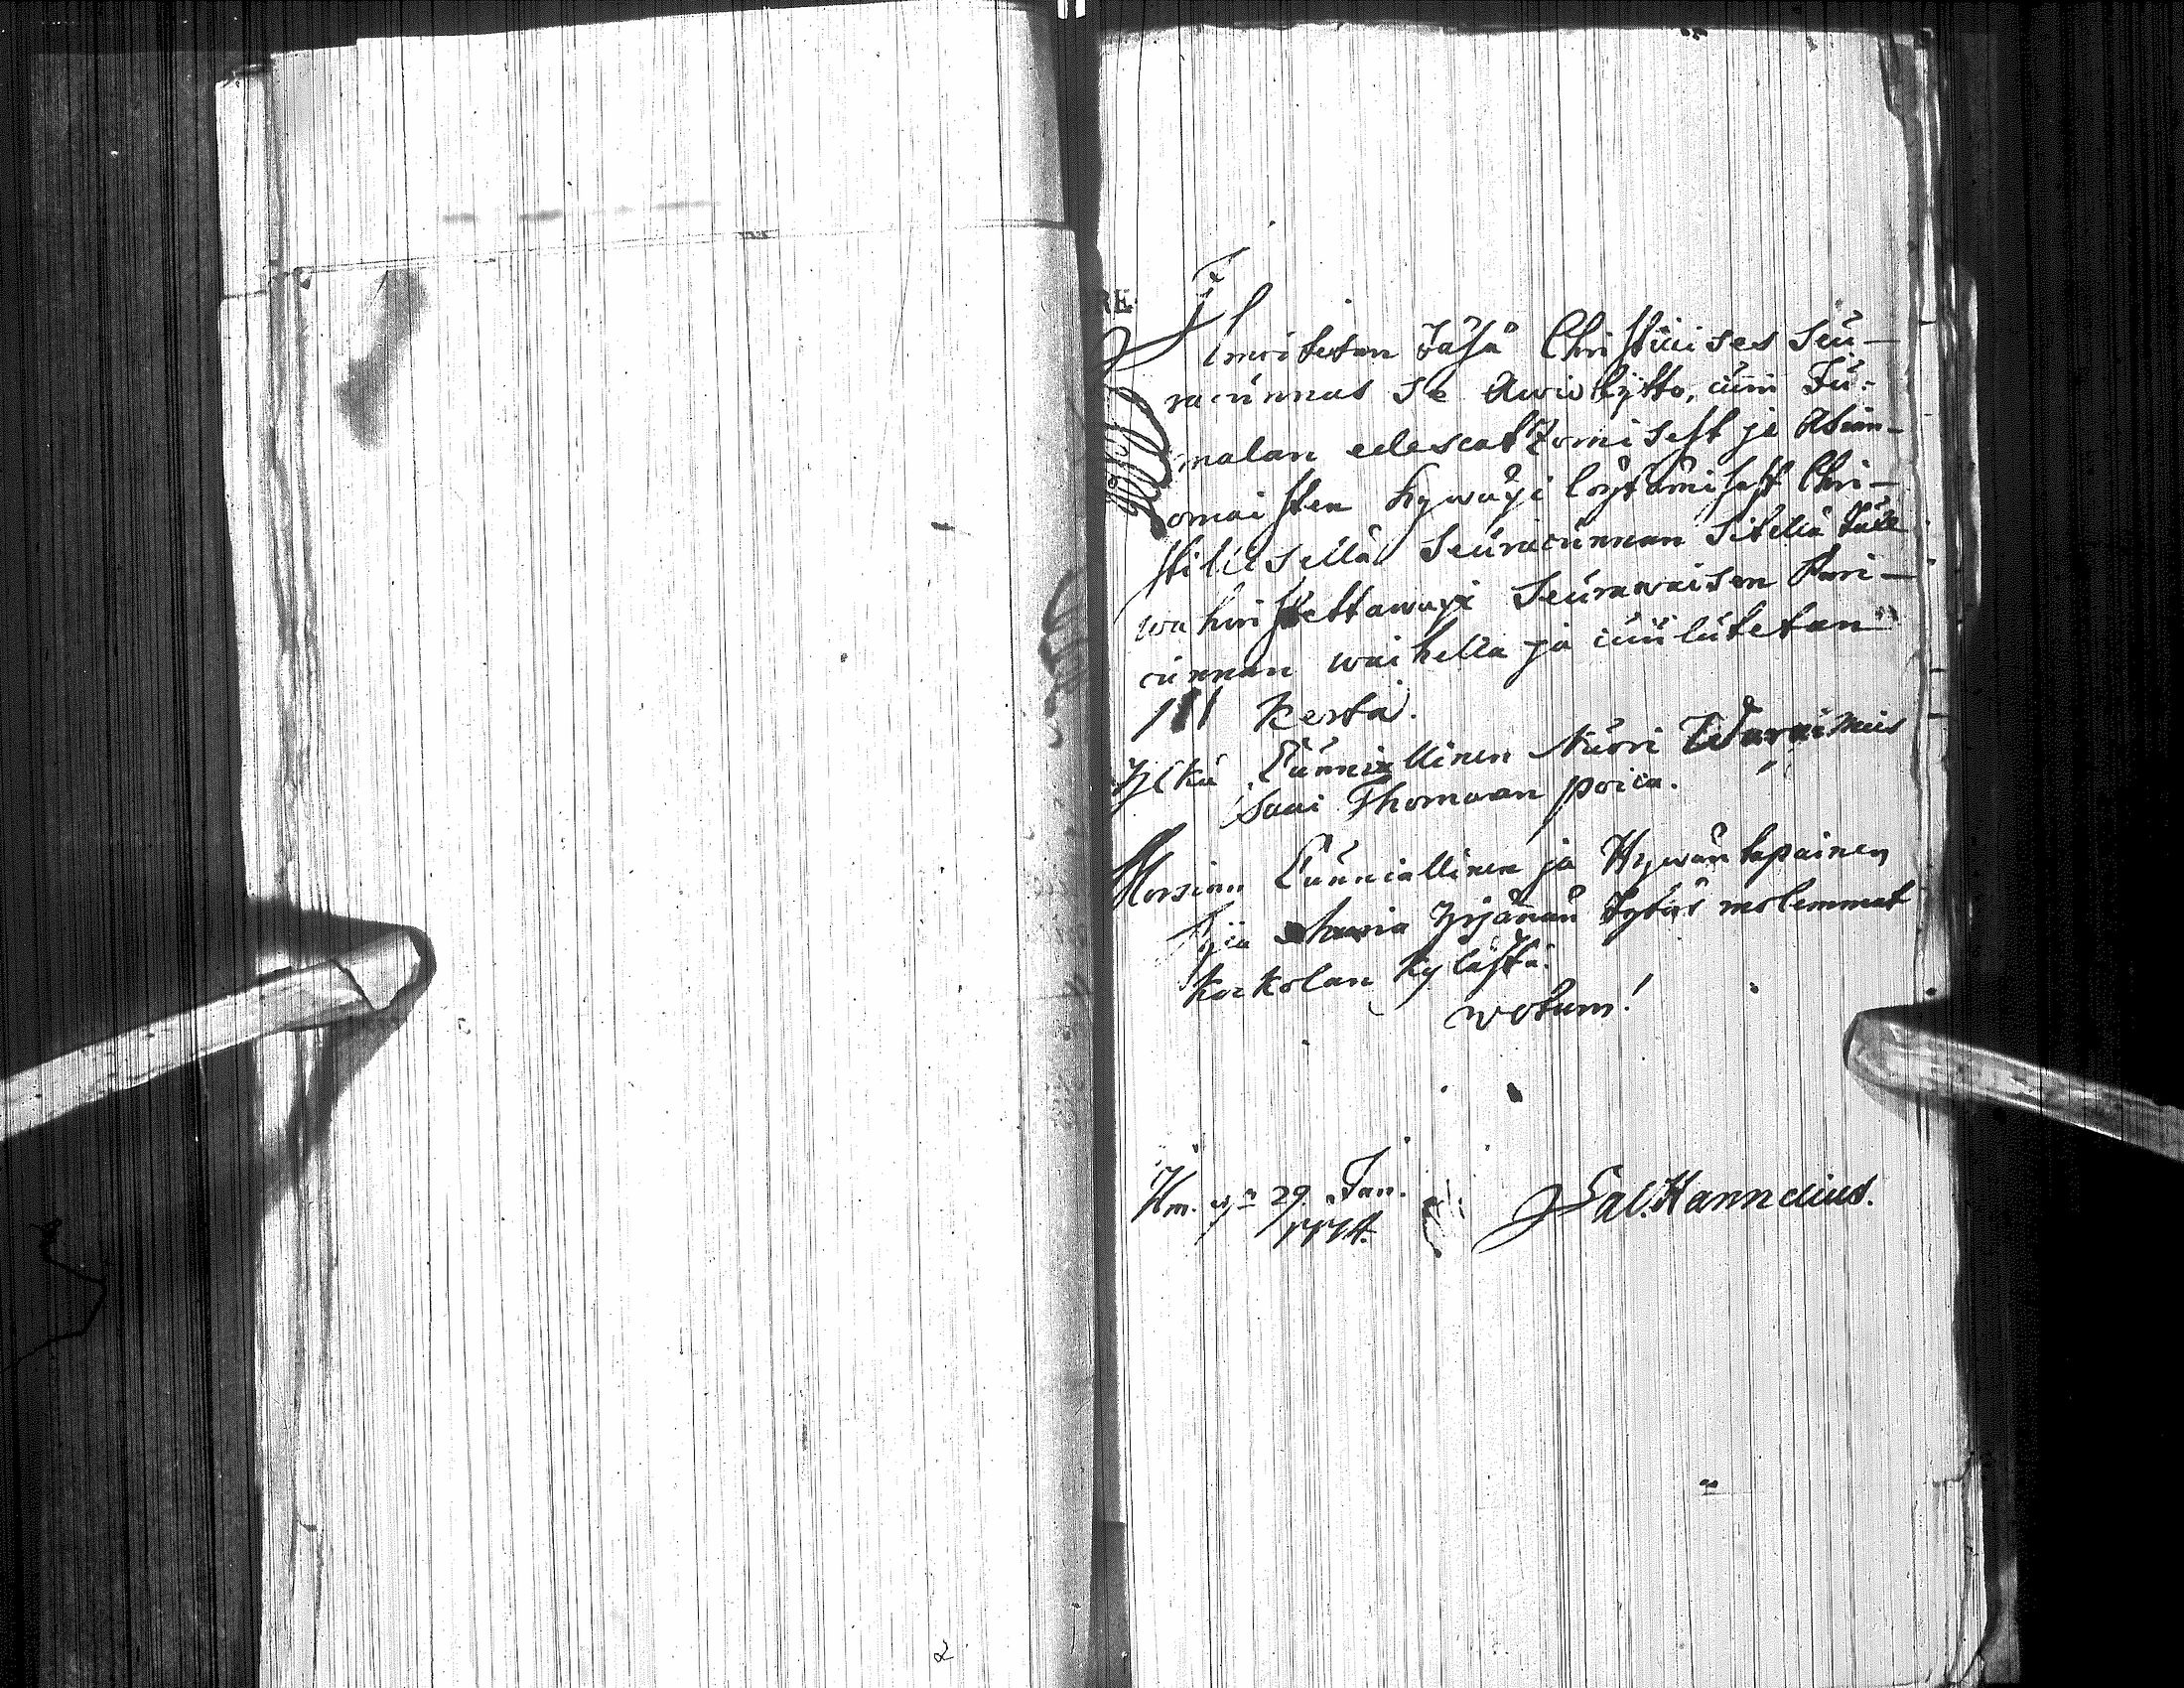 RE
Ilmoitetan Täsä Christilises Seu-
racunnas Se Awioliytto, cuin Ju-
malan edescatzomisest ja Asian-
omaisten hywäxi löytämisest Chri-
stilisellä Seuracunnan Sitellä tule
wahwistettawaxi Seurawaisen Awio-
cunnan waihella ja cuulutetan
III Kerta.
Ylkä Cunniallinen Nuori mies
Isaai Thomaan poica.
Morsian Cunniallinen ja Hywäntapainen
Pjia Maria Yrjänän tytär molemmat
Korkolan Kylästä.
votum!
Ilm. 29 Jan.
1774.
Sal. Hannelius.
2